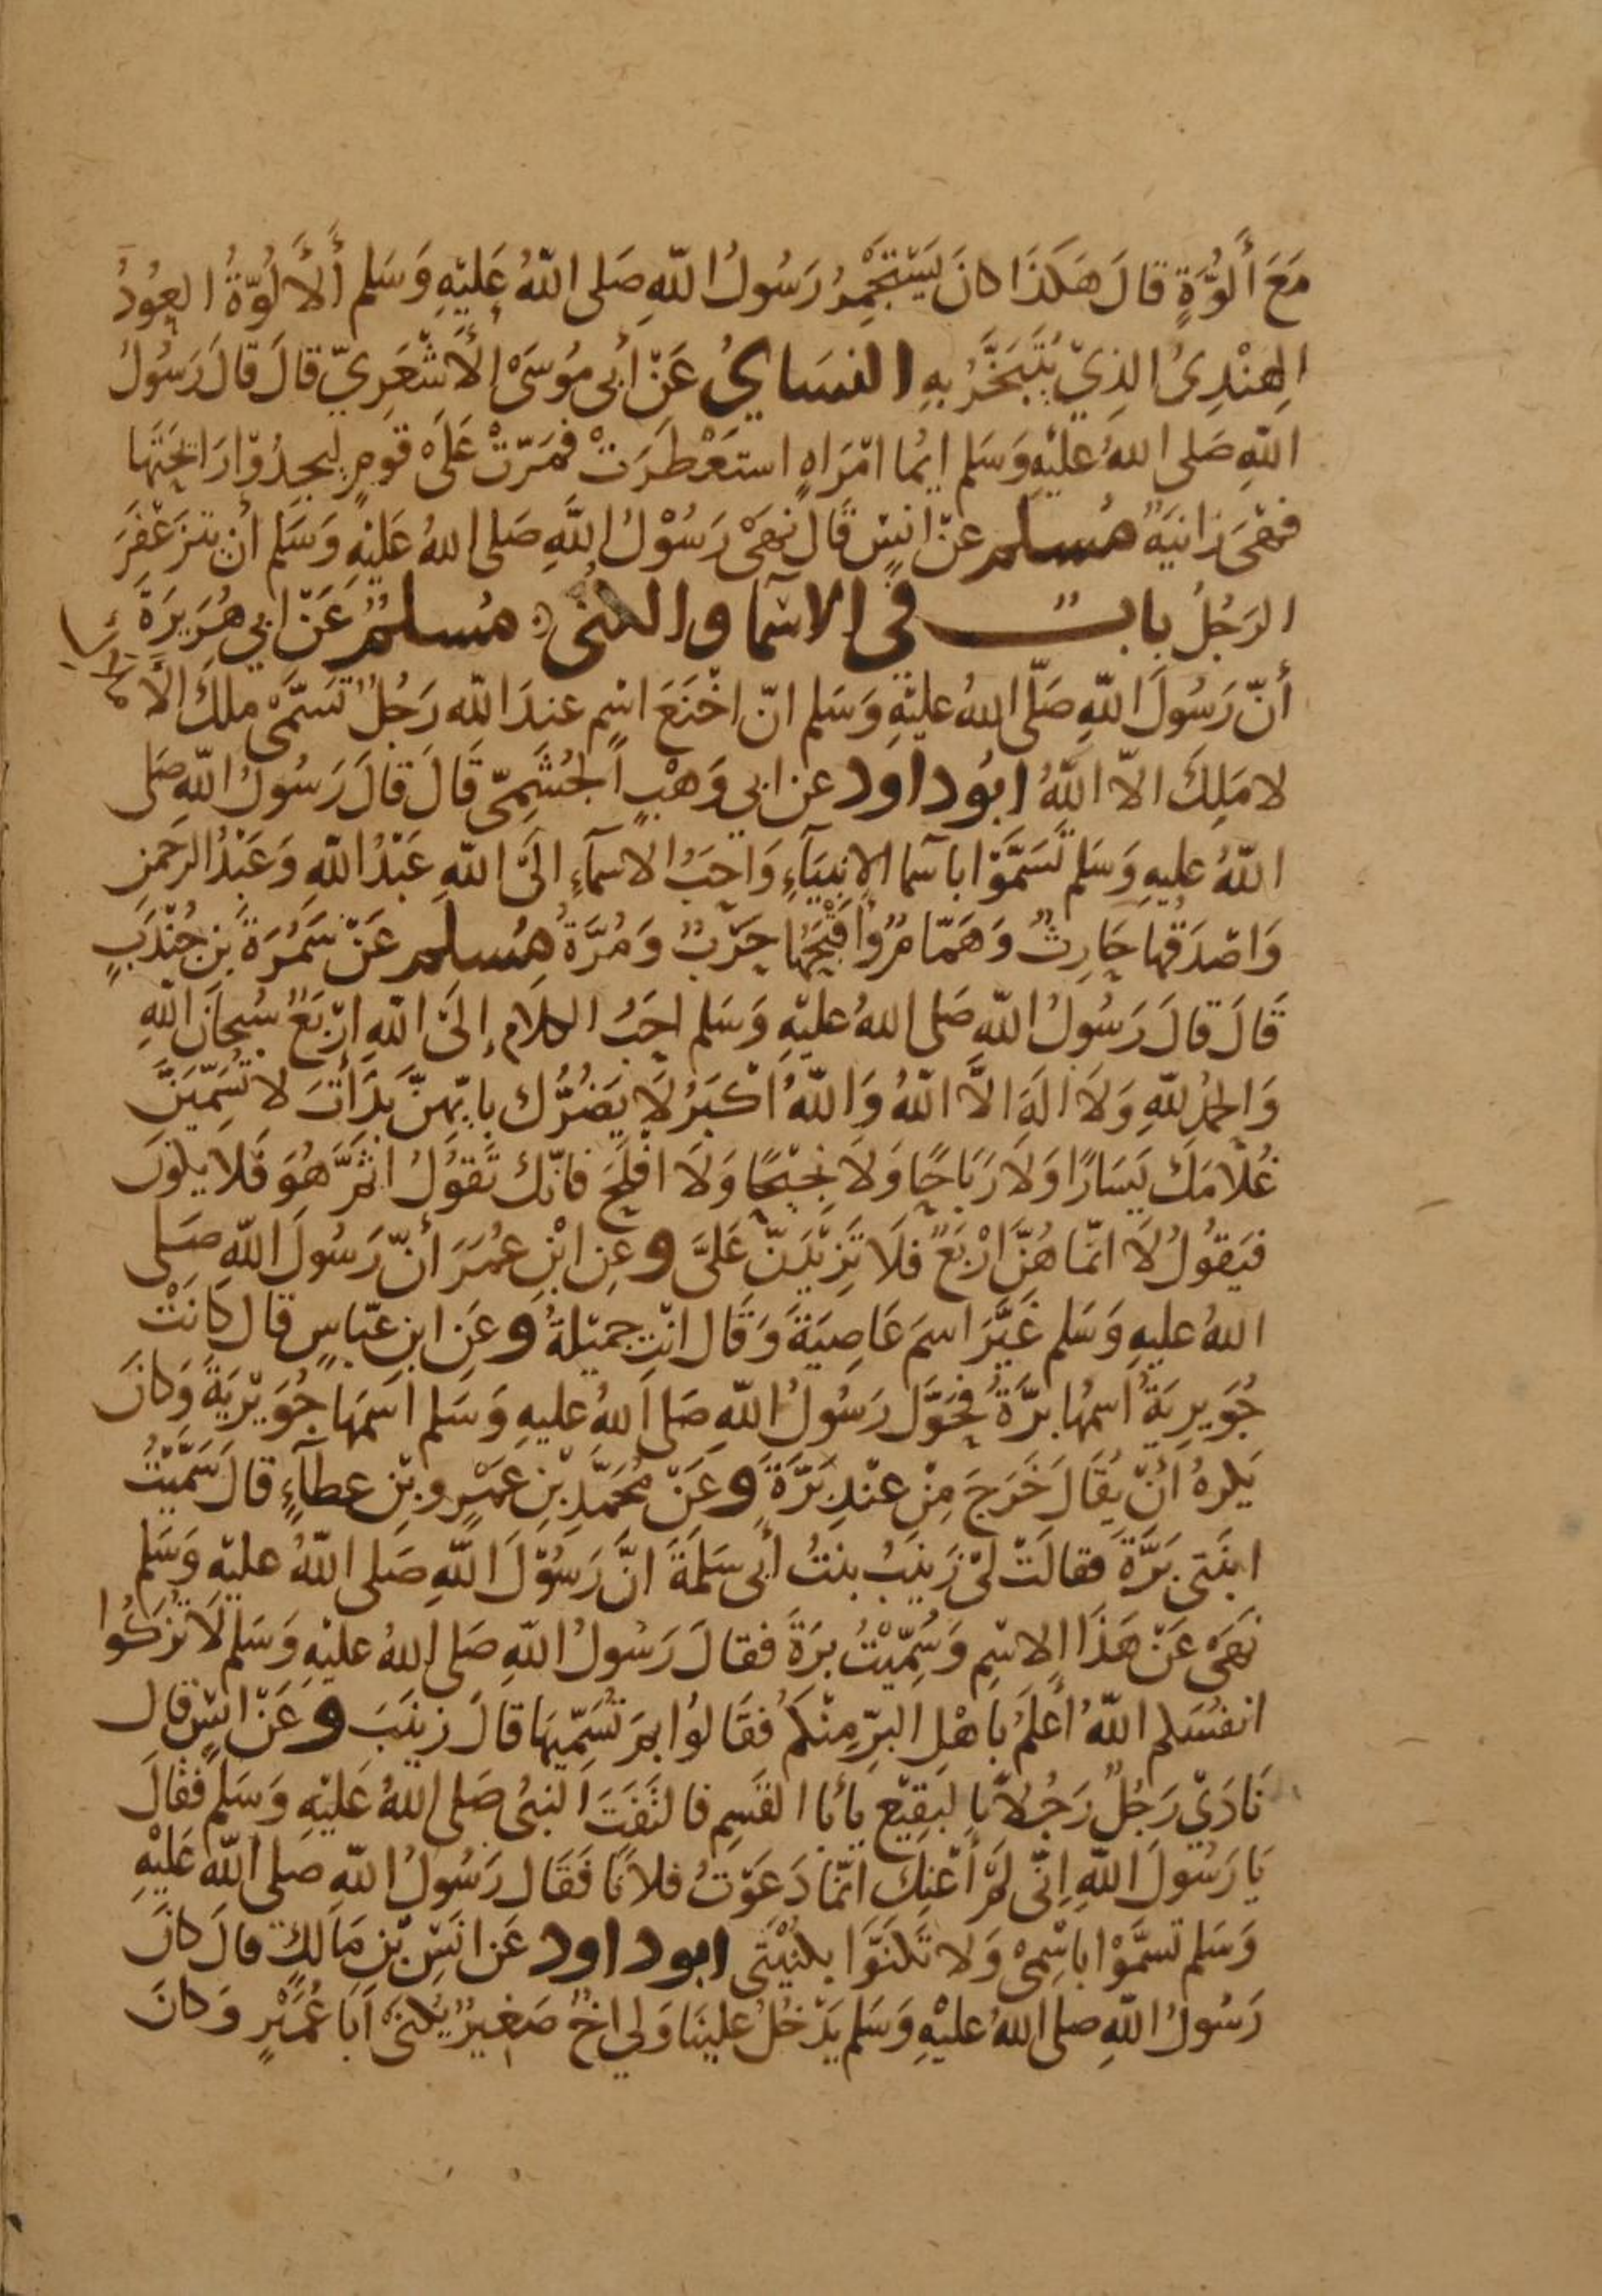 مَعَ أَلُوَّةٍ قَالَ هَكَذَا كانَ يَسْتَجْمِرُ رَسُولُ اللّهِ صَلى اللّهُ عَلَيْهِ وَسَلم أَلأَلُوَّةُ العُودُ
الهِنْدِىُ الذِيْ يُتَبَخَّرُ بِهِ النسَايُ عَنْ أَبى مُوسَىْ الأَشْعَرِيّ قالَ قَالَ رَسُولُ
اللّهِ صَلى اللهُ عَليْهِ وَسَلم ايمُا امْرَاهٍ استَعْطَرَتْ فمَرّتْ عَلَىْ قَومٍ ليجِدُوْا رَائحَتَهَا
فهْىَ زَانيَةٌ مُسلم عنْ انسٍ قَالَ نَهَىْ رَسُوْلُ اللَّهِ صَلى اللهُ عَليْهِ وَسَلم أنْ يتزَعْفرَ
الرَجُلُ بابٌ فى الاسْمَا والكنى مُسلمٌ عَنْ ابي هُرَيرَةَ
أَنّ رَسُولَ اللّهِ صَلّى اللهُ عليْهِ وَسَلم انّ اخْنَعَ اسْمٍ عندَ اللّه رَجُلٌ تَسَمَّىْ ملكَ الاَ
لا مَلِكَ الاّ اللّهُ ابُو داود عن ابي وَهْبٍ الجُشَمِىّ قَالَ قَالَ رَسُولُ اللّهِ صَلى
اللّهُ عليهِ وَسَلم تَسَمَّوْا باسَما الانبيَآءِ وَاحَبُ الاسمآءِ الَىْ اللّهِ عَبْدُ اللّهِ وَعَبْدُ الرحَمنِ
وَاصْدَقُها حَارِثٌ وَهَمّامٌ وَأقْبَحُهَا حَرْبٌ وَمُرَّةُ مُسلم عَنْ سَمُرَةَ بْن جُنْدَبٍ
قَالَ قالَ رَسُولُ اللّهِ صَلى اللهُ عَليْهِ وَسَلم احَبُ الكلاَم إلَىْ اللّهِ ارْبَعٌ سُبحانَ اللّهِ
وَالحمْدُ للّهِ وَلاَ الَهَ الاَّ اللّهُ وَاللّهُ اكْبَرُ لاَ يَضُرُّك بايّهِنَّ بَدَأتَ لا تُسَمِّيَنَّ
غُلاَمَكَ يَسَارًا وَلاَ رَبَاحًا وَلاَ نجيْحًا وَلاَ افْلَحَ فانّك تَقوُلُ اثَمَّ هُوَ فَلا يكونَ
فيَقوُلُ لاَ انمّا هُنّ ارْبَعٌ فلاَ تَزِيْدَنّ عَلىَّ وعن ابْنِ عُمَرَ أنّ رَسُولَ اللّهِ صَلى
اللهُ عليهِ وَسَلم غَيَّرَ اسمَ عَاصِيَةَ وَقَال انْتِ جميْلةُ وعَنِ ابنِ عبّاسٍ قال كَانَتْ
جُوَيريَةُ اسمُها برَّةُ فحَوَّل رَسُولُ اللّهِ صَلى اللهُ عليهِ وَسَلم اسمَهَا جُوَيْريَةَ وَكانَ
يَكرهُ أنْ يقَالَ خَرَجَ مِنْ عنْدِ بَرَّةَ وعَنْ مُحمَّدِ بْنِ عَمْرِو بْنِ عطآءٍ قالَ سَمَّيْتُ
ابنَتى بَرَّةَ فقالَتْ لىْ زَينَبُ بنتُ أَبى سَلَمَةَ انَّ رَسُوْلَ اللَّهِ صَلى اللّهُ عليْهِ وَسَلم
نَهَى عَنْ هَذَا الاسْمِ وَسُمِّيْتُ بَرةَ فقالَ رَسُولُ اللّهِ صَلى اللهُ عليْهِ وَسَلم لاَ تُزَكُوا
انفُسَكم اللّهُ أعلَمُ باهْلِ البرِّ مِنْكمُ فقَالوُا بمَ نُسَمِّيْهَا قالَ زينَبَ وعَنْ انسٍ قال
نَادَىْ رَجُلٌ رَجُلاً بالبَقِيْع يا أبا القَسِمِ فالتَفَتَ النبىُ صَلى اللهُ عَليْهِ وَسَلم فقالَ
يَا رَسُولَ اللّهِ إنّى لَمْ أعْنِكَ انمّا دَعَوْتُ فلانًا فَقَال رَسُولُ اللّهِ صلى اللّهُ عَليْهِ
وَسَلم تسمَّوْا باسْمِىْ وَلا تَكنَّوا بكنيْتى ابو داود عَن انَسِ بْنِ مَالكٍ قالَ كانَ
رَسُولُ اللّهِ صلى اللهُ عليْهِ وَسَلم يَدْخُلُ علينَا وَلي اخٌ صَغيرٌ يُكنىْ أبَا عُمَيْرٍ وَكانَ